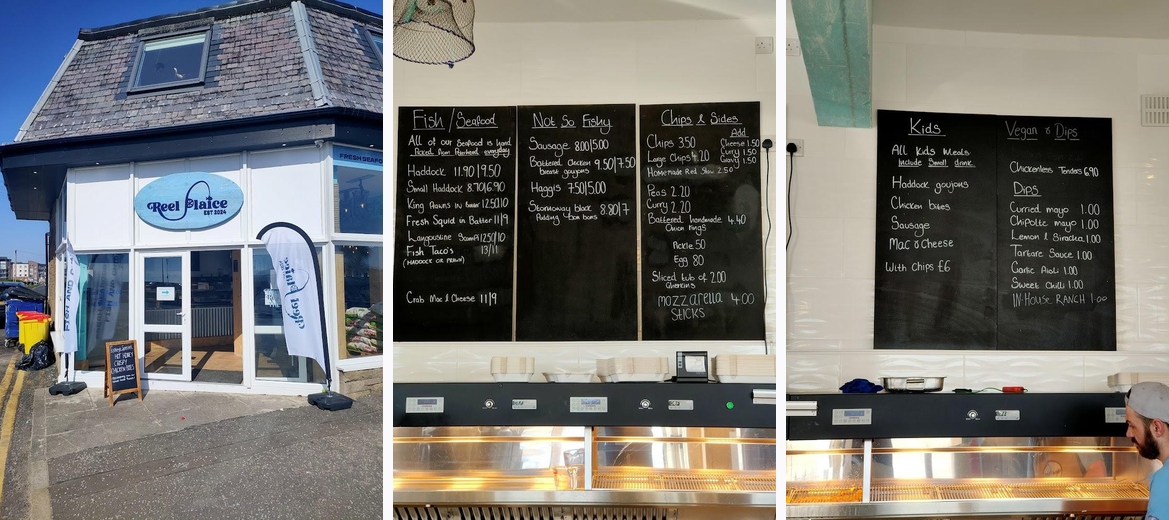 FRESH SEAFO
Reel Plaice
EST 2024
HOT HONEY
CRISPY
CHICKEN BITES
Fish/Seafood
All of our Seafood is Hand
Haddock 11.90|9.50
Small Haddock 8.70|6.90
King Prawns in batter 12.50|10
Fresh Squid in Batter 11|9
Langoustine Scampi 12.50|10
Fish Taco's 13/11
(HADDOCK OR PRAWN)
Crab Mac & Cheese 11|9
Not So Fishy
Sausage 8.00|5.00
Battered chicken 9.50|7.50
breast goujons
Haggis 7.50|5.00
Stornoway black 8.80|7
Pudding bon bons
Chips & Sides
Add
Chips 3.50 Cheese 1.50
Large Chips 4.20 Curry 1.50
Gravy 1.50
Homemade Red Slaw 2.50
Peas 2.20
Curry 2.20
Battered handmade 4.40
Onion Rings
Pickle 50
Egg 80
Sliced tub of 2.00
Gherkins
MOZZARELLA 4.00
STICKS
Kids
All Kids Meals
Include Small drink.
Haddock goujons
Chicken bites
Sausage
Mac & Cheese
With Chips £6
Vegan & Dips
Chickenless Tenders 6.90
Dips
Curried mayo 1.00
Chipotle mayo 1.00
Lemon & Siracha 1.00
Tartare Sauce 1.00
Garlic Aioli 1.00
Sweet Chilli 1.00
IN-HOUSE RANCH 1.00